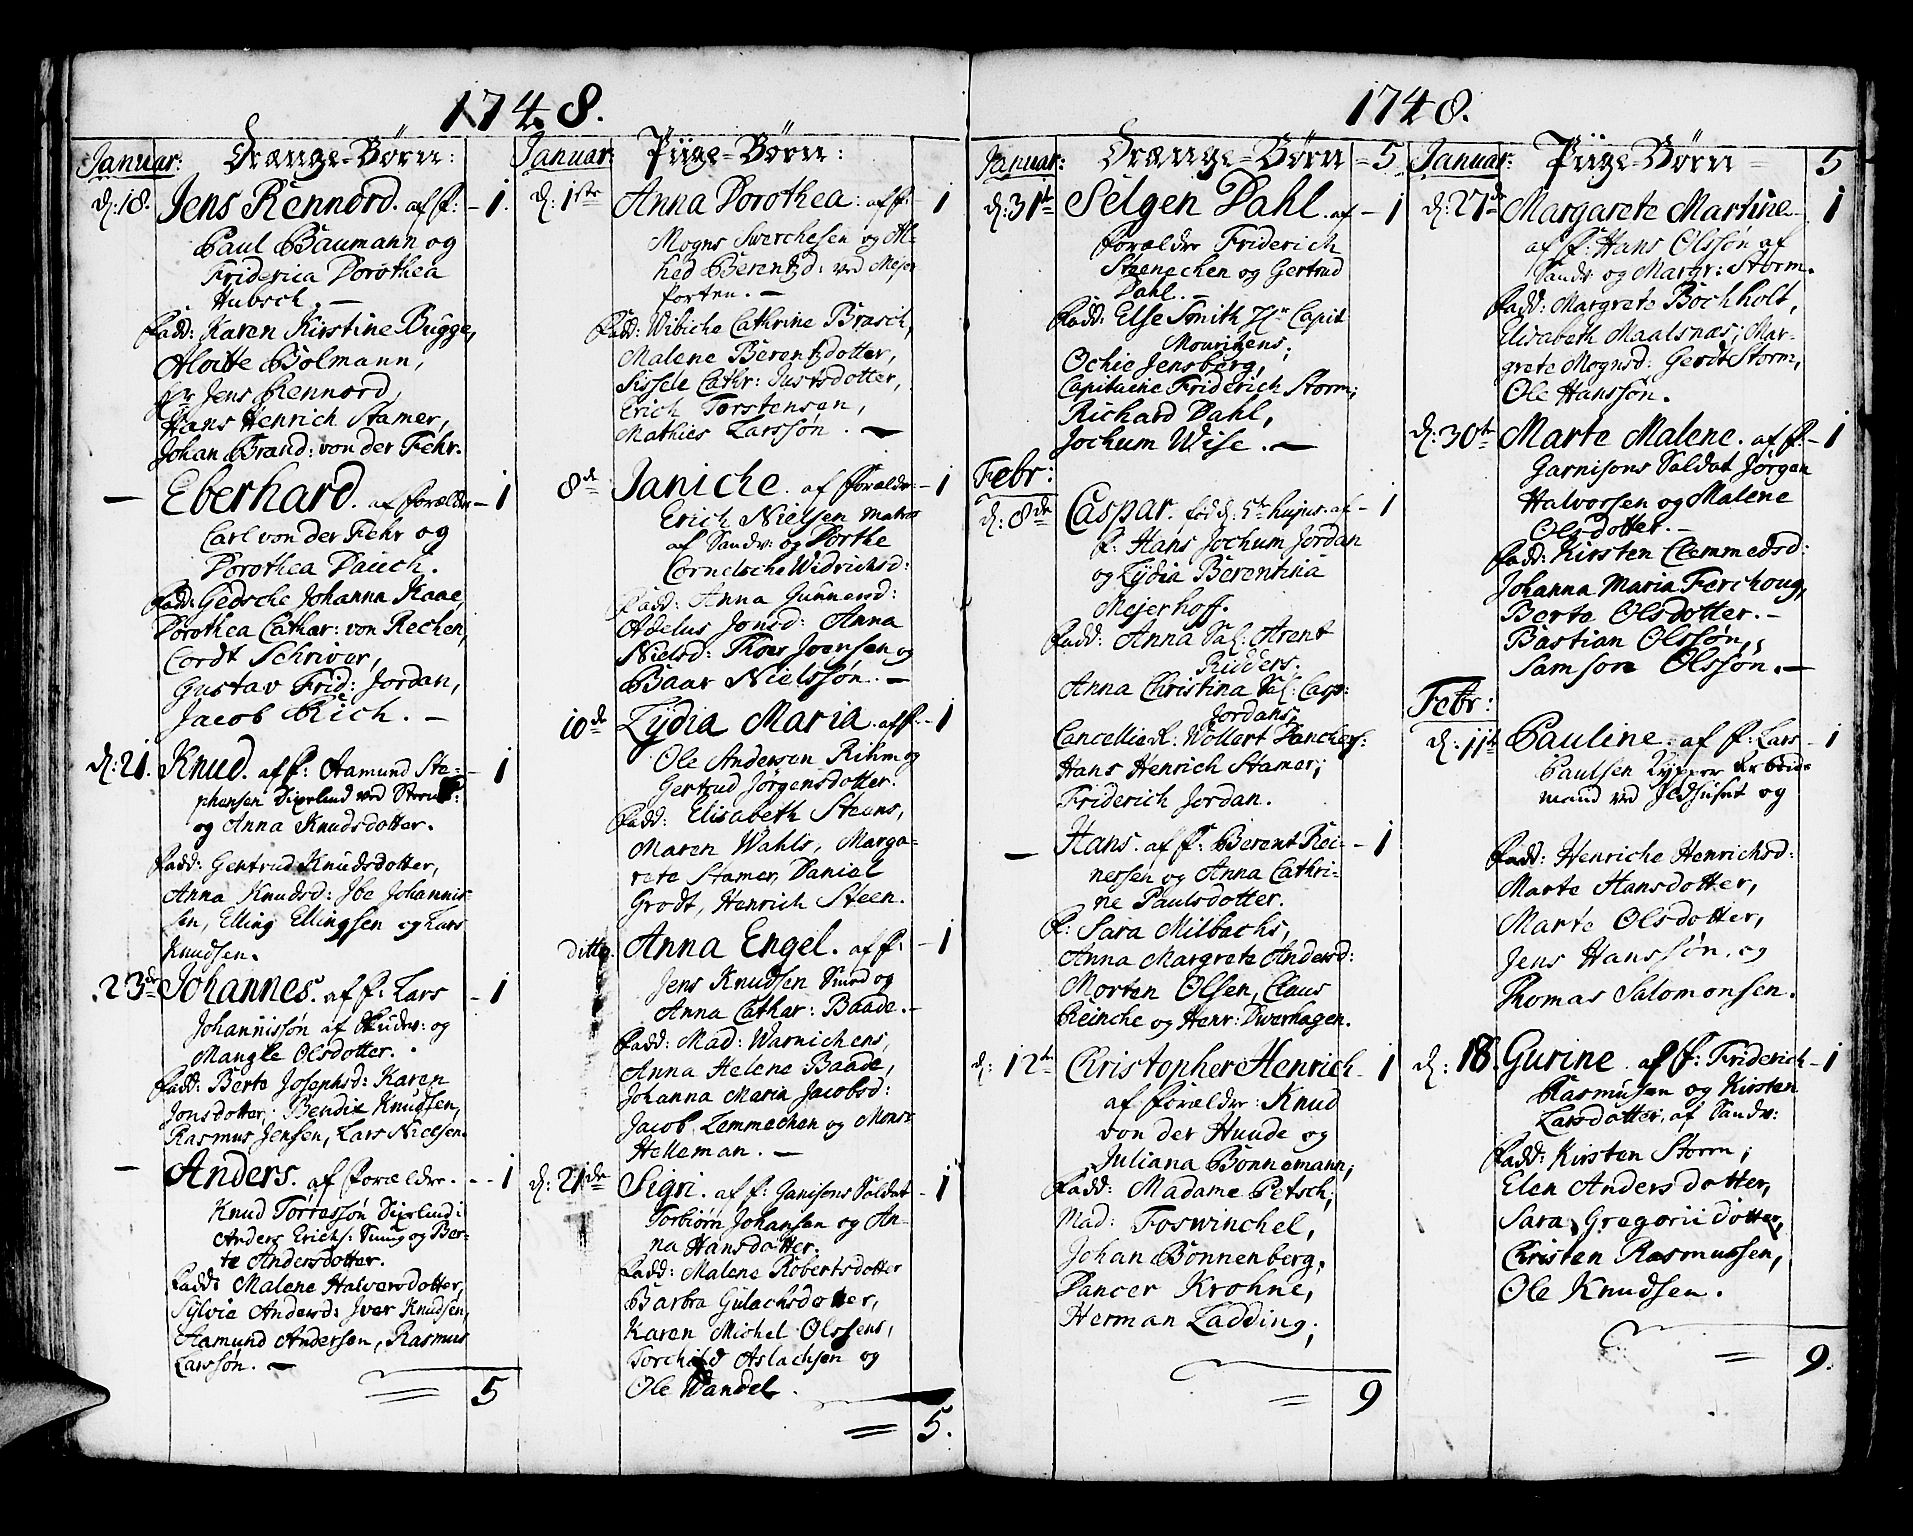 1748.
Januar: Drænge-Børn:
d: 18. Jens Rennord. af f: - 1.
Paul Baumann og
Friderica Dorothea
Hubsch. —
Fadd: Karen Kirstine Bugge,
Aloitte Bolmann,
Hr Jens Rennord,
Hans Henrich Stamer,
Johan Brand: von der Fehr.
— Eberhard. af forældre - 1
Carl von der Fehr og
Dorothea Dauch.
Fadd: Gedsche Johanna Kaae
Dorothea Cathar: von Rechen,
Cordt Schriver,
Gustav Frid: Jordan,
Jacob Rich. —
d: 21. Knud. af f: Aamund Ste- - 1
phensen
og Anna Knudsdotter.
Fadd: Gertrud Knudsdotter,
Anna Knudsd: Ibe Johannis-
sen, Elling Ellingsen og Lars
Knudsen.
23de Johannes. af f: Lars - 1
Johannissøn af og
Mangle Olsdotter.
Fadd: Berte Josephsd: Karen
Jonsdotter; Bendix Knudsen,
Rasmus Jensen, Lars Nielsen.
— Anders. af forældre. - - 1
Knud Torressøn
Anders Erichs: og Ber-
te Andersdotter.
Fadd: Malene Halversdotter,
Sylvie Andersd: Iver Knudsen,
Aamund Andersen, Rasmus
Larssøn. —
5
Januar: Piige-Børn:
d: 1ste Anna Dorothea: af f: 1
Mogns Swerchesen og Al-
hed Berentzd: ved Mejer
Porten. —
Fadd: Wibiche Cathrine Brasch,
Malene Berentzdotter,
Sissele Cathr: Justsdotter,
Erich Torstensen,
Mathies Larssøn. —
8de Janiche. af forældr: - 1
Erich Nielsen
af Sandv: og Dorthe
Cornelsche Widrichsd:
Fadd: Anna Gunnersd:
Adelus Jonsd: Anna
Nielsd: Thoer Joensen og
Baar Nielssøn. —
10de Lydia Maria. af f: - 1
Ole Andersen Rihm og
Gertrud Jørgensdotter.
Fadd: Elisabeth Steens,
Maren Wahls, Marga-
rete Stamer, Daniel
Grodt, Henrich Steen.
ditto. Anna Engel. af f: - 1
Jens Knudsen Smed og
Anna Cathar: Baade. -
Fadd: Mad: Warnichens,
Anna Helene Baade,
Johanna Maria Jacobsd:
Jacob Lemmechen og Mons
Helleman. —
d: 21de Sigri. af f: Ganisons Soldat - 1
Torbiørn Johansen og An-
na Hansdotter.
Fadd: Malene Robertsdotter
Barbra Gulachsdotter,
Karen Michel Olssens,
Torchild Aslachsen og
Ole Wandel.
= 5.
1748.
Januar: Drænge-Børn = 5
d: 31te Selgen Dahl. af - 1
forældre Friderich
Steenechen og Gertrud
Dahl. —
Fadd: Else Smith Capit
Mouritzens,
Ochie Jensberg,
Capitaine Friderich Storm;
Richard Dahl,
Jochum Wise. —
Febr:
d: 8de Caspar. fød d: 5te hujus. af - 1
f: Hans Jochum Jordan
og Lydia Berentina
Mejerhoff.
Fadd: Anna Sal: Arent
Ridders.
Anna Christina Sal: Casp:
Jordans,
Cancellie R: Wollert Danchers:
Hans Henrich Stamer;
Friderich Jordan.
— Hans. af f: Berent Rei- - 1
nersen og Anna Cathri-
ne Paulsdotter.
F: Sara Milbachs,
Anna Margrete Andersd:
Morten Olsen, Claus
Reinche og Henr: Dwerhagen.
d: 12te Christopher Henrich - 1
af forældre: Knud
von der Huude og
Juliana Bonnemann,
Fadd: Madame Petsch,
Mad: Foswinchel,
Johan Bonnenberg,
Dancer Krohne,
Herman Ladding;
= 9
Januar: Piige-Børn = 5
d: 27de Margarete Martine 1
af f: Hans Olssøn af
Sandv og Margr: Storm.
Fadd: Margrete Bochholt,
Elisabeth Maalsnæs; Mar-
grete Mognsd: Gerdt Storm,
Ole Hanssøn.
d: 30te Marte Malene. af f: - 1
Garnisons Saldat Jørgen
Halvorsen og Malene
Olsdotter. —
Fadd: Kirsten Clemmedsd:
Johanna Maria Ferchoug,
Berte Olsdotter. -
Bastian Olssøn,
Samson Olssøn. —
Febr:
d: 11te Pauline. af f: Lars - 1
Paulsen Arbeids
mand ved og
Fadd: Henriche Henrichsd:
Marte Hansdotter,
Marte Olsdotter,
Jens Hanssøn, og
Thomas Salomonsen.
d: 18. Gurine. af f: Friderich - 1
Rasmusen og Kirsten
Larsdotter. af Sandv:
Fadd: Kirsten Storm;
Elen Andersdotter,
Sara Gregorii dotter,
Christen Rasmussen,
Ole Knudsen.
= 9.